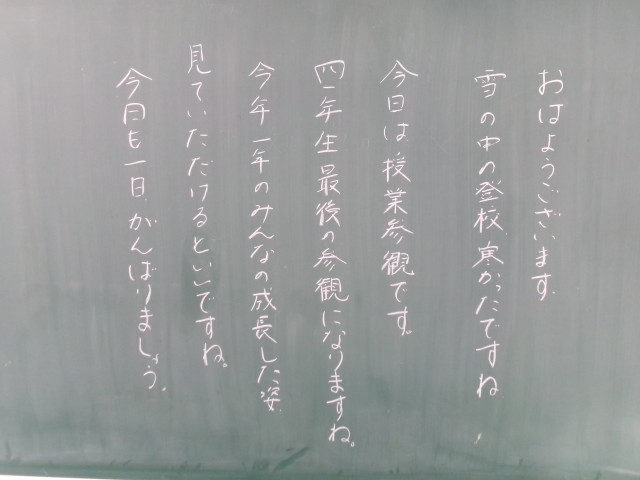 おはようございます
雪の中の登校、寒かったですね
今日は授業参観です。
四年生最後の参観になりますね。
今年一年のみんなの成長した姿
見ていただけるといいですね。
今日も一日がんばりましょう。